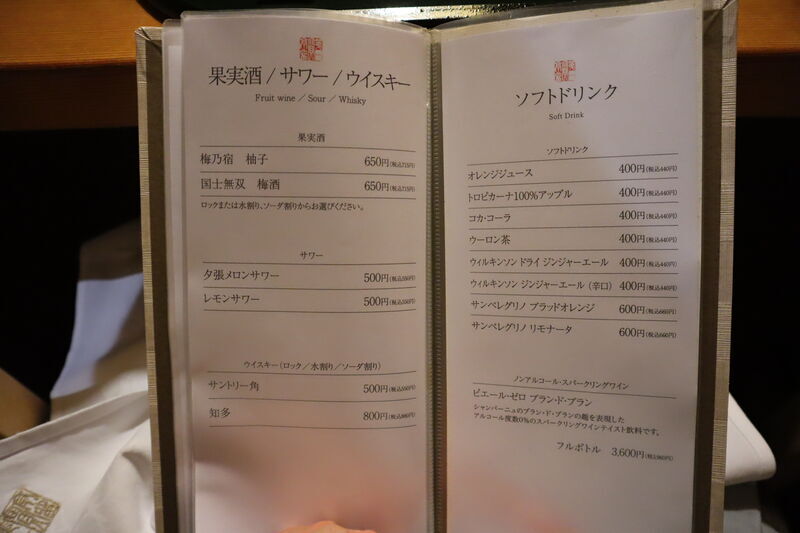 果実酒 / サワー / ウイスキー
Fruit wine / Sour / Whisky
果実酒
梅乃宿 柚子 650円(税込715円)
国士無双 梅酒 650円(税込715円)
ロックまたは水割り、ソーダ割りからお選びください。
サワー
夕張メロンサワー 500円(税込550円)
レモンサワー 500円(税込550円)
ウイスキー(ロック/水割り/ソーダ割り)
サントリー角 500円(税込550円)
知多 800円(税込880円)
ソフトドリンク
Soft Drink
ソフトドリンク
オレンジジュース 400円(税込440円)
トロピカーナ100%アップル 400円(税込440円)
コカ・コーラ 400円(税込440円)
ウーロン茶 400円(税込440円)
ウィルキンソン ドライ ジンジャーエール 400円(税込440円)
ウィルキンソン ジンジャーエール (辛口) 400円(税込440円)
サンペレグリノ ブラッドオレンジ 600円(税込660円)
サンペレグリノ リモナータ 600円(税込660円)
ノンアルコール・スパークリングワイン
ピエール・ゼロ ブラン・ド・ブラン
シャンパーニュのブラン・ド・ブランの趣を表現した
アルコール度数0%のスパークリングワインテイスト飲料です。
フルボトル 3,600円